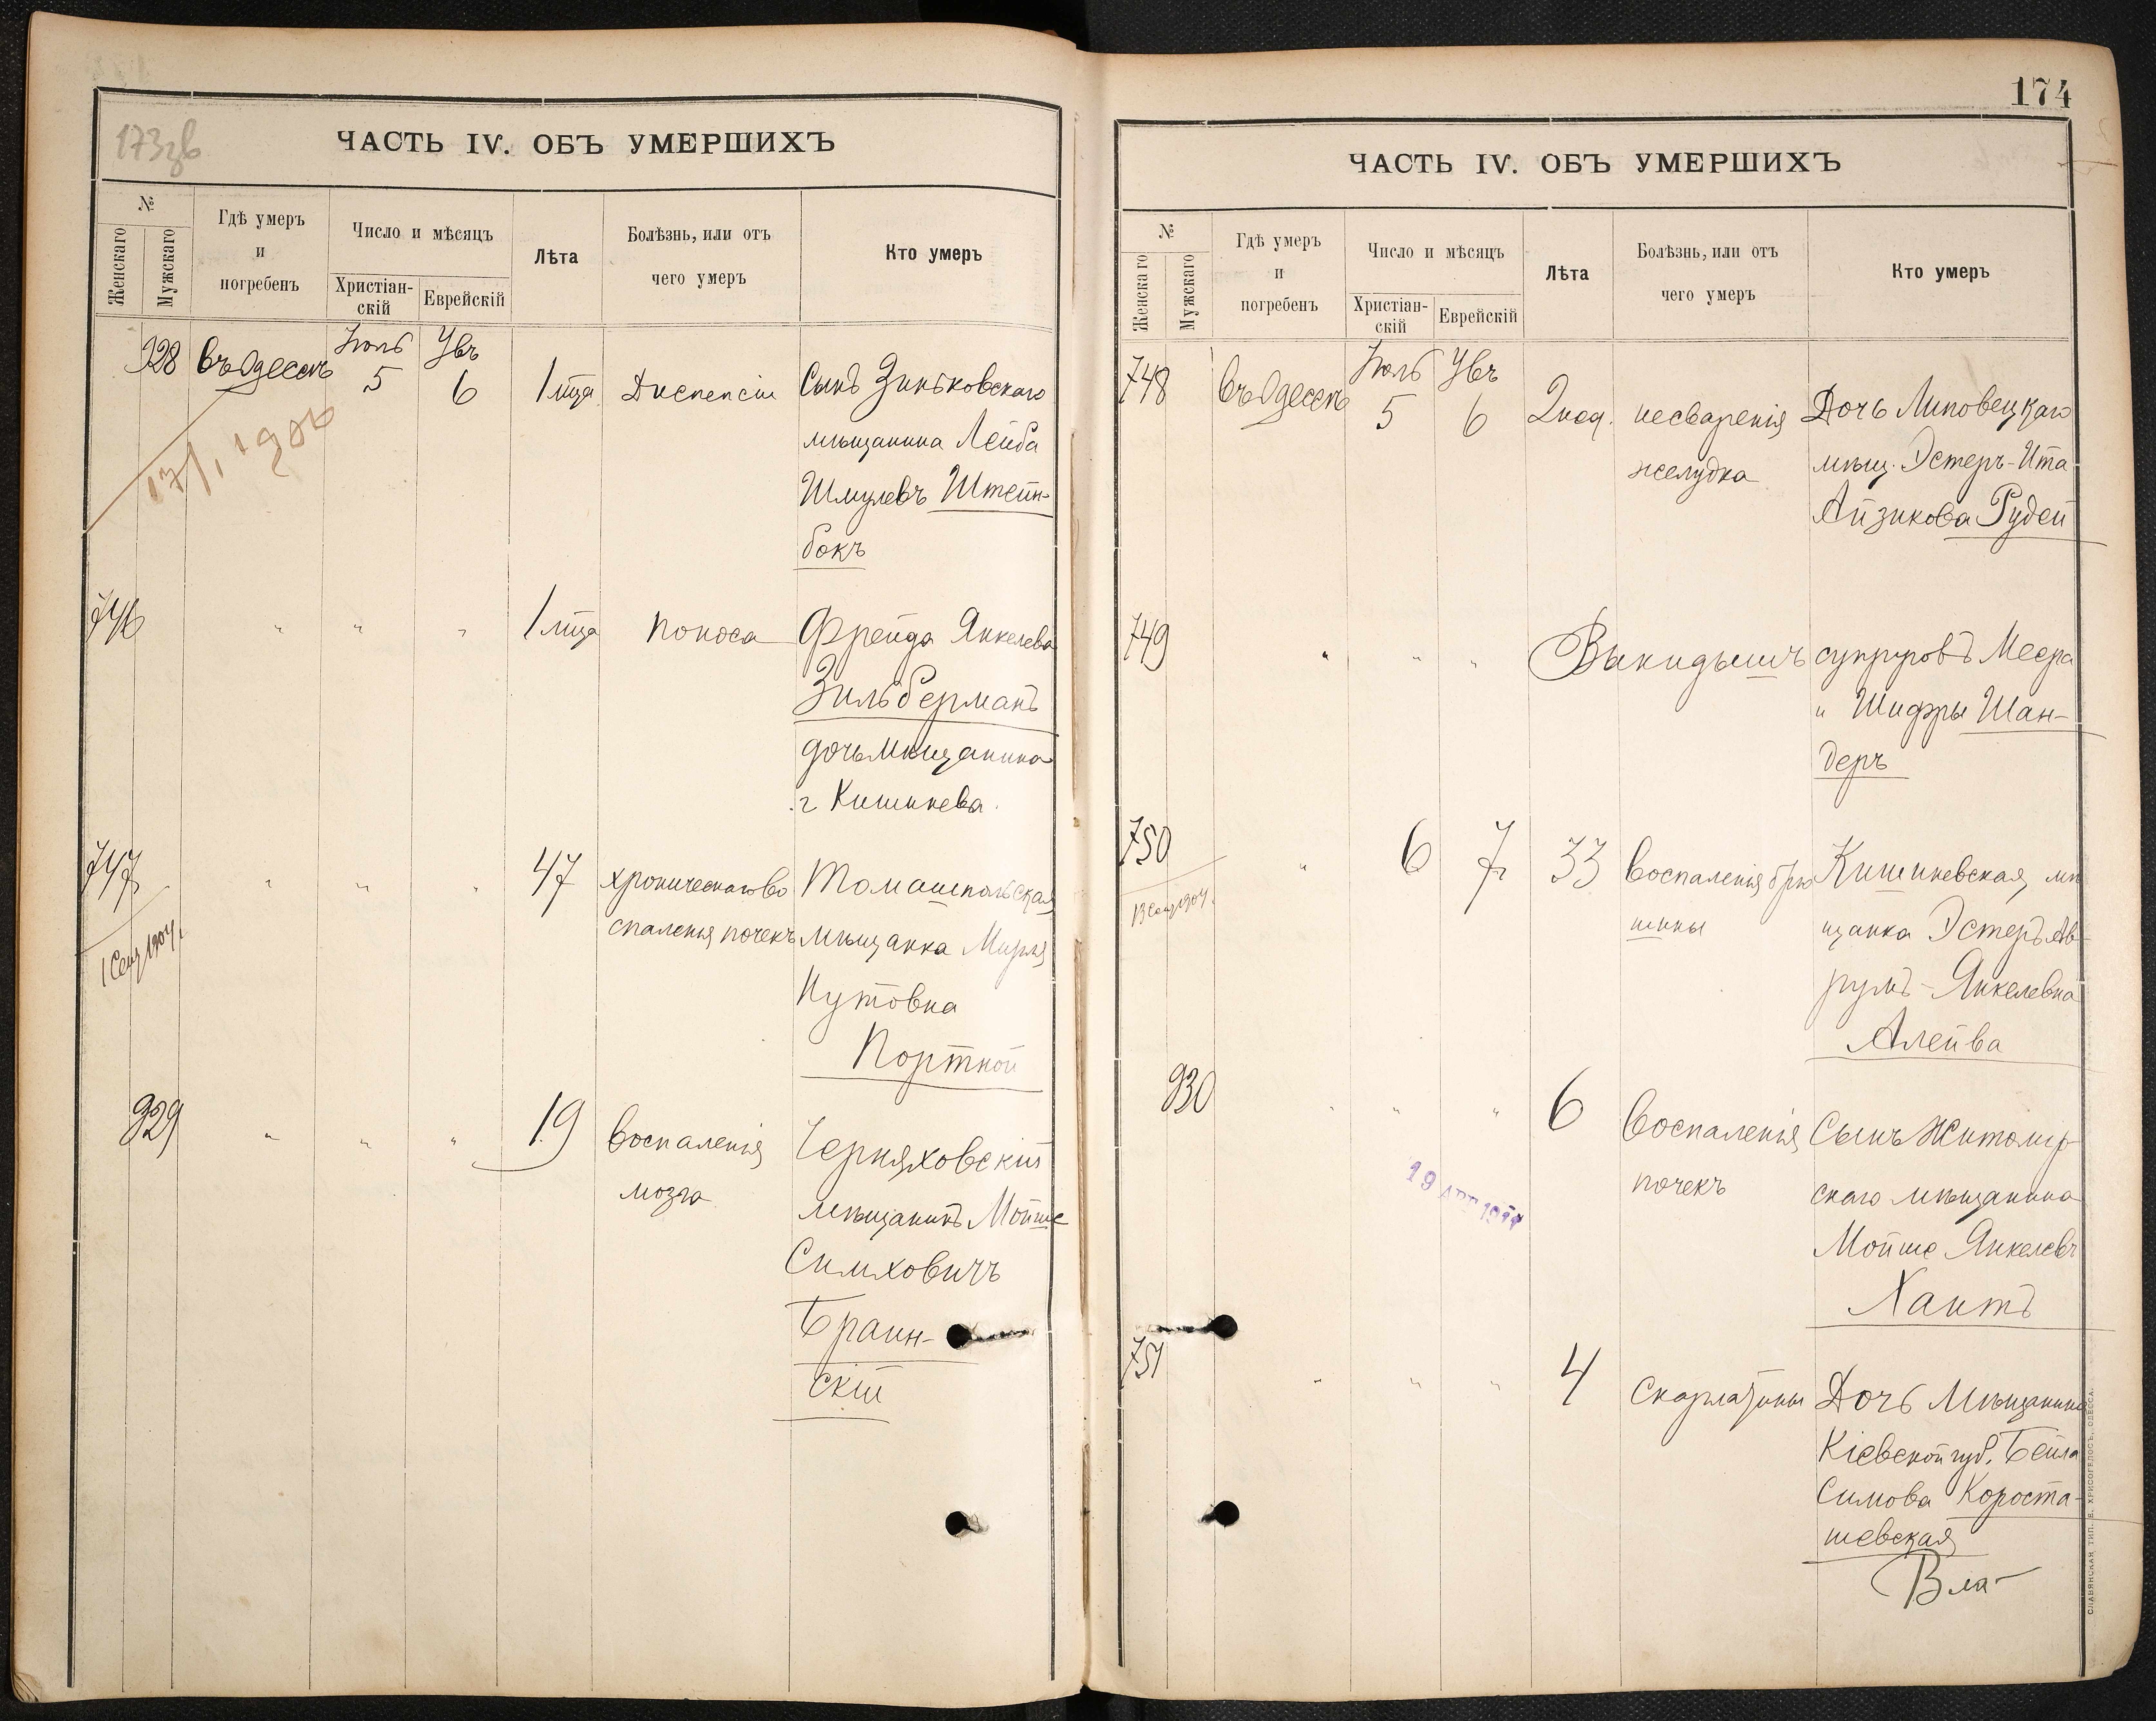 173зв
ЧАСТЬ IV. ОБЪ УМЕРШИХЪ
№
Женскаго
Мужскаго
Гдѣ умеръ
и
погребенъ
Число и мѣсяцъ
Христіан-
скій
Еврейскій
Лѣта
Болѣзнь, или отъ
чего умеръ
Кто умеръ
928 въ Одессѣ Іюль 5 6 1 мца Диспепсіи Сынъ Зиньковскаго
мѣщанина Лейба
Шмулевъ Штейн-
бокъ
746 " " " 1 мца поноса Фрейда Янкелева
Зильберманъ
дочь мѣщанина
г Кишинева.
747 " " " 47 хроническаго во Томашпольская
спаленія почекъ мѣщанка Мирля
Нутовна
1 Сен 1904
Портной
929 " " " 19 воспаленія Черняховскій
мозга мѣщанинъ Мойше
Симховичъ
Браин-
скій
174
ЧАСТЬ IV. ОБЪ УМЕРШИХЪ
№
Женскаго
Мужскаго
Гдѣ умеръ
и
погребенъ
Число и мѣсяцъ
Христіан-
скій
Еврейскій
Лѣта
Болѣзнь, или отъ
чего умеръ
Кто умеръ
748 въ Одессѣ Іюль 5 6 2 нед. несваренія Дочь Липовецкаго
желудка мѣщ. Эстеръ-Ита
Айзикова Рудей
749 " " " Выкидышъ супруговъ Меера
и Шифры Шан-
деръ
750 " 6 7 33 воспаленія брю Кишиневская мѣ
шины щанка Эстеръ Ав-
румъ-Янкелевна
Алейва
930 " " " 6 воспаленія Сынъ Житомир-
почекъ скаго мѣщанина
Мойше Янкелевъ
Хаитъ
751 " " " 4 Скарлатины Дочь Мѣщанина
Кіевской губ. Бейла
Симова Короста-
шевская
СЛАВЯНСКАЯ ТИП. Е. ХРИСОГЕЛОСЪ, ОДЕССА.